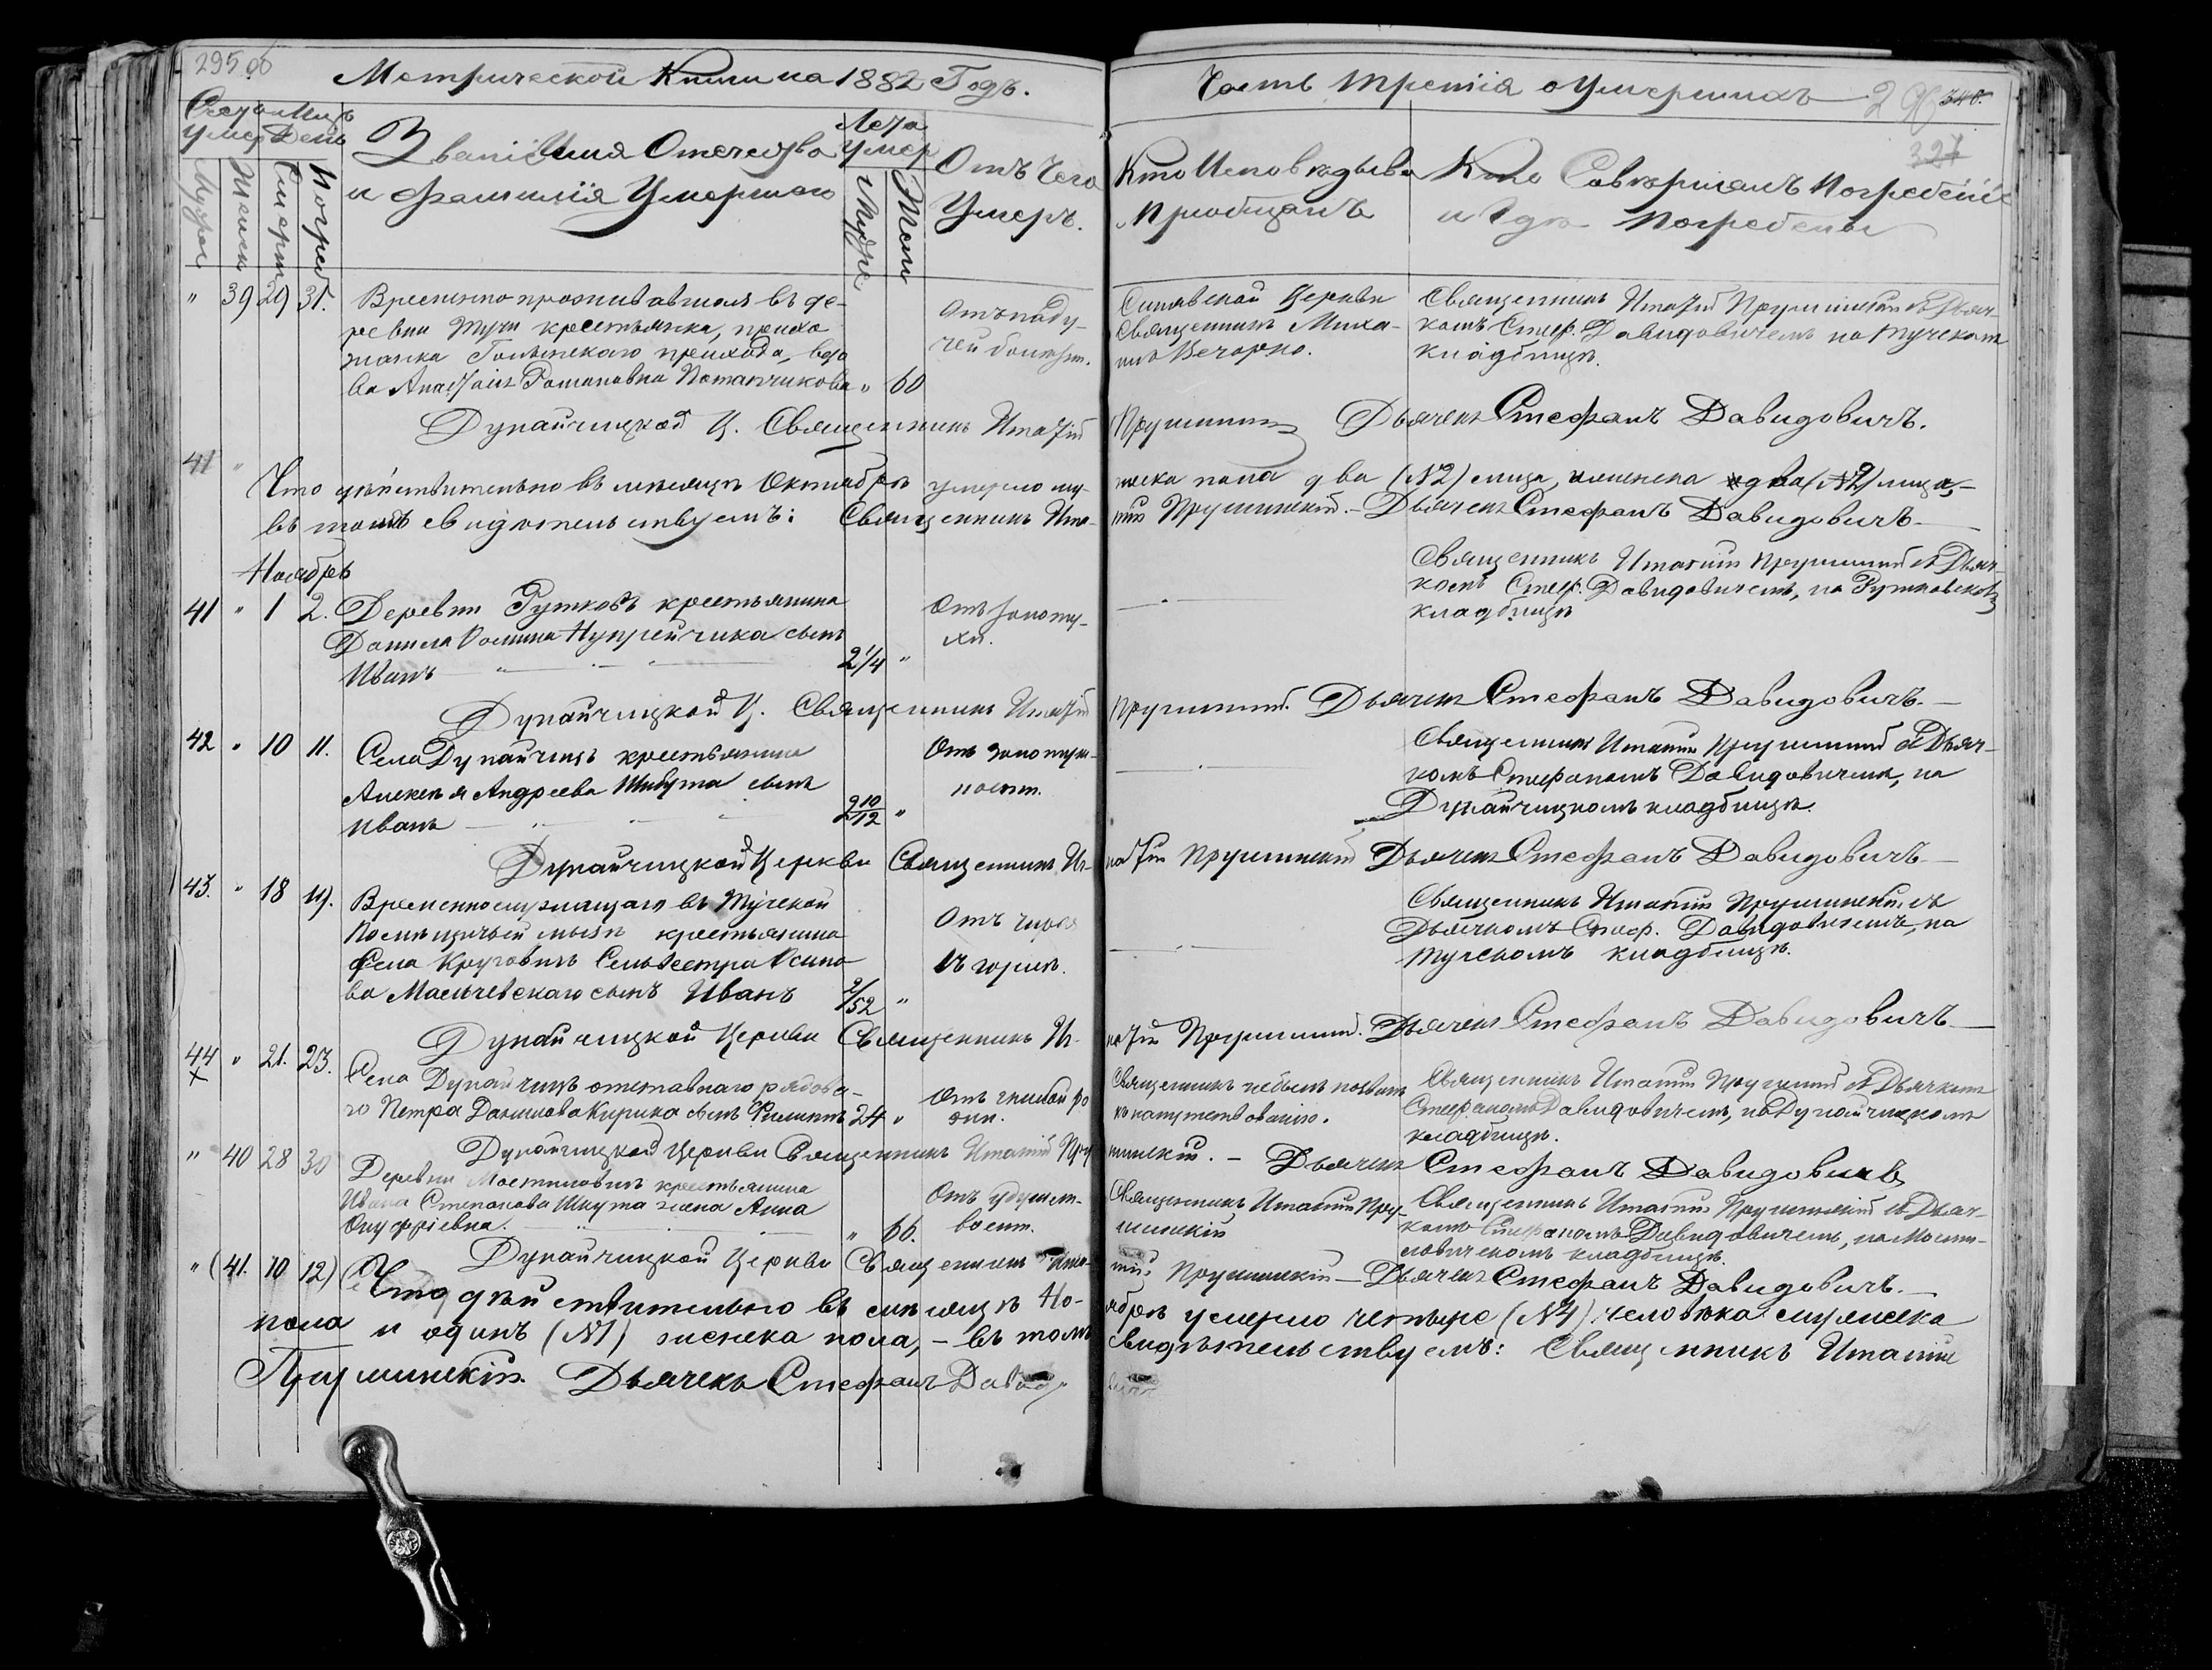 295 об
Метрической Книги на 1882 Годъ.
Часть третія о Умершихъ
346.
327
Мужес
Женск
Смерт
Погреб.
Званіе Имя Отчество
и фамилія Умершаго
Лета
умер
Мужес
Женс
Отъ Чего
Умеръ.
Кто Исповедыва
и Приобщалъ
Кто Совершалъ Погребеніе
и Где Погребены
" 39 29 31.
Временно проживавшая въ де-
ревни Тучи крестьянка, прихо
жанка прихода, вдо
ва Анастасія Романовна Потапчикова " 60
Священникъ Миха-
илъ Вечорко.
Священникъ Игнатій Прушинскій съ Дьяч-
комъ Стеф. Давидовичемъ на Тучскомъ
кладбищѣ.
Дунайчицкой Ц. Священникъ Игнатій
Дьячекъ Стефанъ Давидовичъ.
41 "
Что дѣйствительно въ мѣсяцѣ Октябрѣ умерло му-
жеска пола два (№2) лица, женска два (№2) лица,
въ томъ свидѣтельствуемъ: Священникъ Игна-
тій Прушинскій. – Дьячекъ Стефанъ Давидовичъ
Ноябрь
41 " 1 2.
Деревни Рутковъ крестьянина
Данила сынъ
Иванъ 2 1/4 "
Отъ золоту-
хи.
Священникъ Игнатій Прушинскій съ Дьяч-
комъ Стеф. Давидовичемъ, на Рутковском
кладбищѣ
Дунайчицкой Ц. Священникъ Игнатій
Прушинскій. Дьячекъ Стефанъ Давидовичъ.
42 " 10 11.
Села Дунайчицъ крестьянина
Алексѣя Андреева Шкута сынъ
Иванъ 2 10/12 "
Отъ золотуш-
ности.
Священникъ Игнатій Прушинскій съ Дьяч-
комъ Стефаномъ Давидовичемъ, на
Дунайчицкомъ кладбищѣ.
Дунайчицкой Церкви Священникъ Иг-
натій Прушинскій Дьячекъ Стефанъ Давидовичъ
43. " 18 19.
Временно служащаго въ Тучской
Помѣщичьей мызѣ крестьянина
Села Круговичъ Сельвестра Осипо
ва Мальчевскаго сынъ Иванъ 2/52 "
Отъ чирья
въ горлѣ.
Священникъ Игнатій Прушинскій, съ
Дьячкомъ Стеф. Давидовичемъ, на
Тучскомъ кладбищѣ.
Дунайчицкой Церкви Священникъ Иг-
натій Прушинскій. Дьячекъ Стефанъ Давидовичъ
44 " 21. 23.
Села Дунайчицъ отставнаго рядова-
го Петра Данилова Кирика сынъ Филиппъ 24 "
Священникъ небылъ позванъ
къ напутствованію.
Священникъ Игнатій Прушинскій съ Дьячкомъ
Стефаномъ Давидовичемъ, на Дунайчицкомъ
кладбищѣ.
Дунайчицкой Церкви Священникъ Игнатій Пру
шинскій. – Дьячекъ Стефанъ Давидовичъ
" 40 28 30
Деревни Мостиловичъ крестьянина
Ивана Степанова Шкута жена Анна
Онуфріевна. " 66.
Отъ удушли-
вости.
Священникъ Игнатій Пру-
шинскій
Священникъ Игнатій Прушинскій съ Дьяч-
комъ Стефаномъ Давидовичемъ, на Мости-
ловичскомъ кладбищѣ.
" (41. 10 12)
Дунайчицкой Церкви Священникъ Игна-
тій Прушинскій – Дьячекъ Стефанъ Давидовичъ.
Что дѣйствительно въ мѣсяцѣ Но-
ябрѣ умерло четыре (№4) человѣка мужеска
пола и одинъ (№1) женска пола, – въ томъ
свидѣтельствуемъ: Священникъ Игнатій
Прушинскій. Дьячекъ Стефанъ Давидо-
вичъ